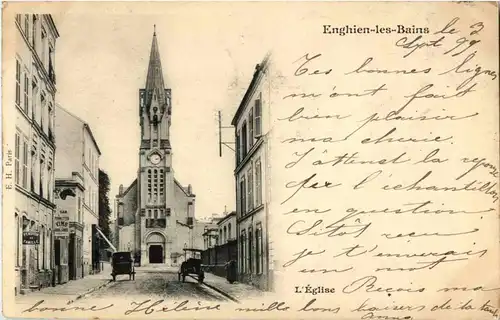 Enghien-les-Bains
le 3
Sept 99
Tes bonnes ligne
m'ont fait
bien plaisir
ma cherie.
J'attends la repose
l'échantillon
en question.
Sitôt recu
je t'enverais
un mot
L'Église.
Recois ma
bonne Hélène mille bons baisers de ta
E. H. Paris